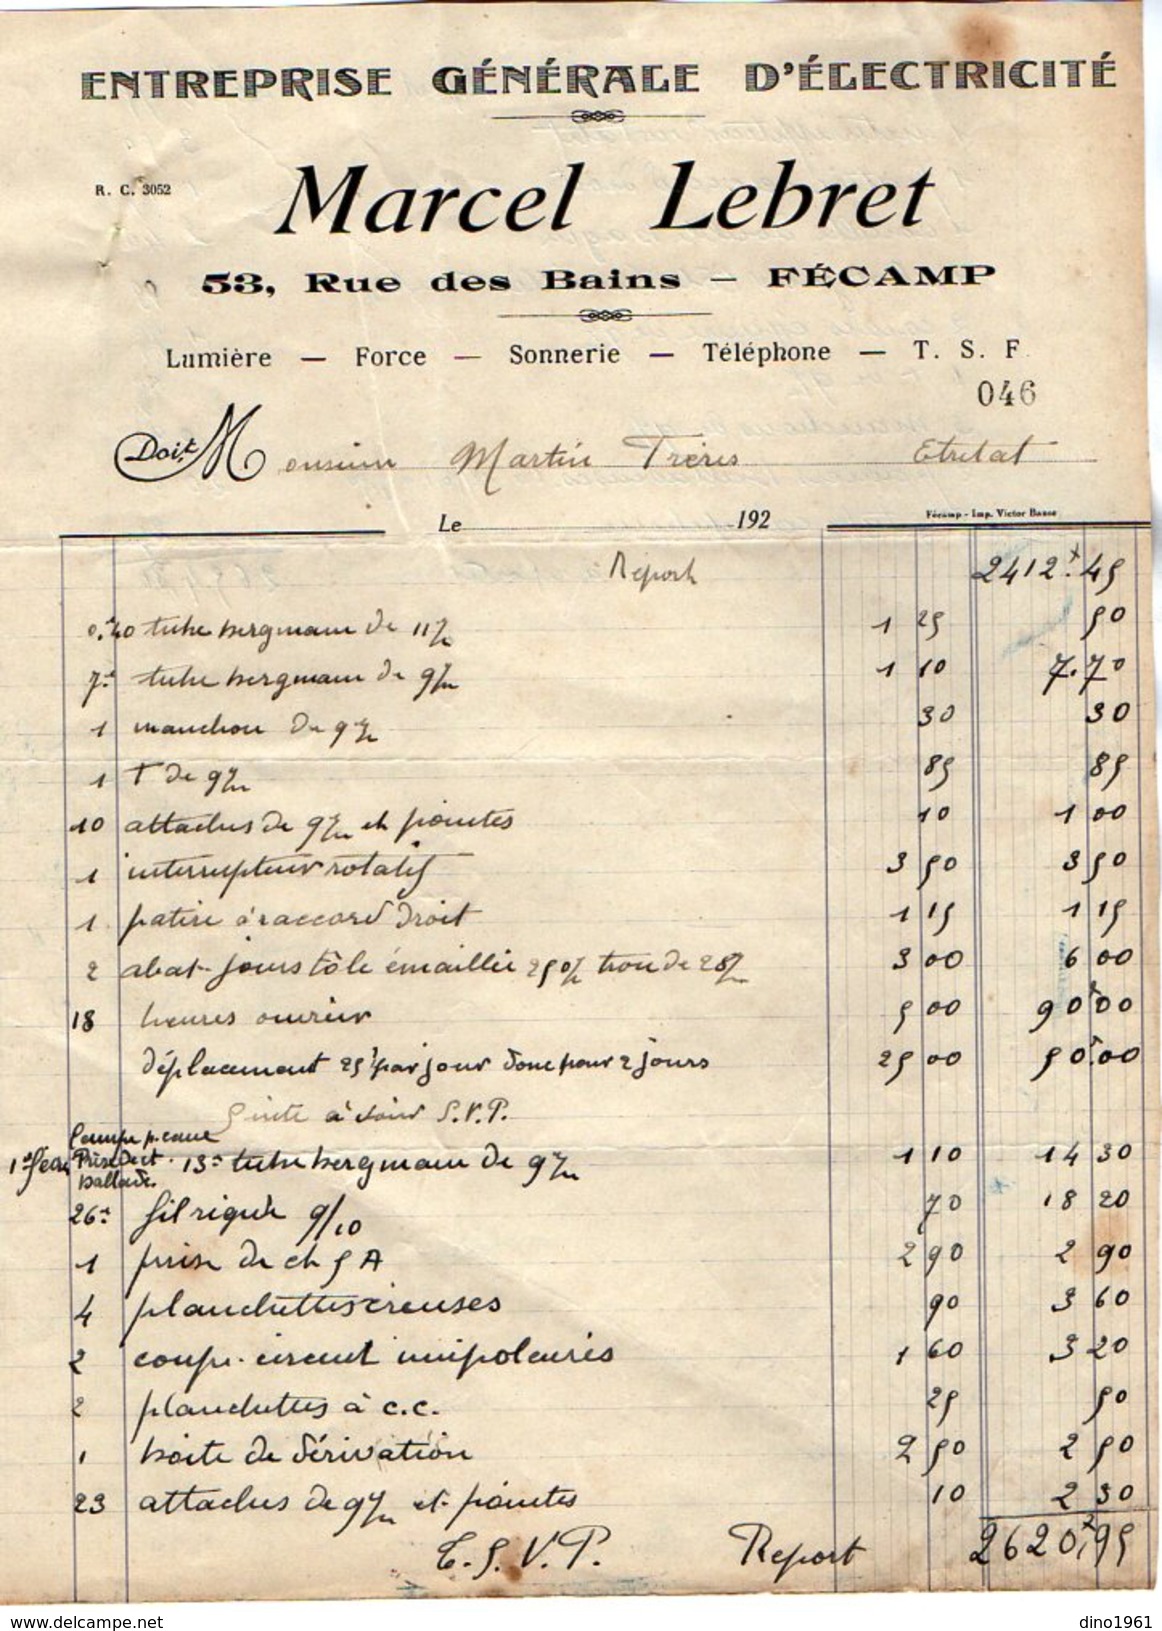 ENTREPRISE GÉNÉRALE D'ÉLECTRICITÉ
R. C. 3052
Marcel Lebret
53, Rue des Bains — FÉCAMP
Lumière — Force — Sonnerie — Téléphone — T. S. F
046
Doit Monsieur Martin Frères Etretat
Fécamp - Imp. Victor Banse
Le 192
Report 2412f.45
0m40 tube bergmann de 11 m/m 1 25 50
7m tube bergmann de 9 m/m 1 10 7.70
1 manchon de 9 m/m 30 30
1 T de 9 m/m 85 85
10 attaches de 9 m/m et pointes 10 1 00
1 interrupteur rotatif 3 50 3 50
1 patère à raccord droit 1 15 1 15
2 abat-jours tôle émaillée 250 m/m trou de 28 m/m 3 00 6 00
18 heures ouvrier 5 00 90f00
déplacement 25f par jour donc pour 2 jours 25 00 50f00
à S.V.P.
Lampe p. cave
Prise de ct. 13m tube bergmann de 9 m/m 1 10 14 30
Ballade.
26m fil rigide 9/10 70 18 20
1 prise de ct 5 A 2 90 2 90
4 planchettes creuses 90 3 60
2 coupe-circuit unipolaires 1 60 3 20
2 planchettes à c.c. 25 50
1 boîte de dérivation 2 50 2 50
23 attaches de 9 m/m et pointes 10 2 30
T.S.V.P. Report 2620f,95
www.delcampe.net
dino1961